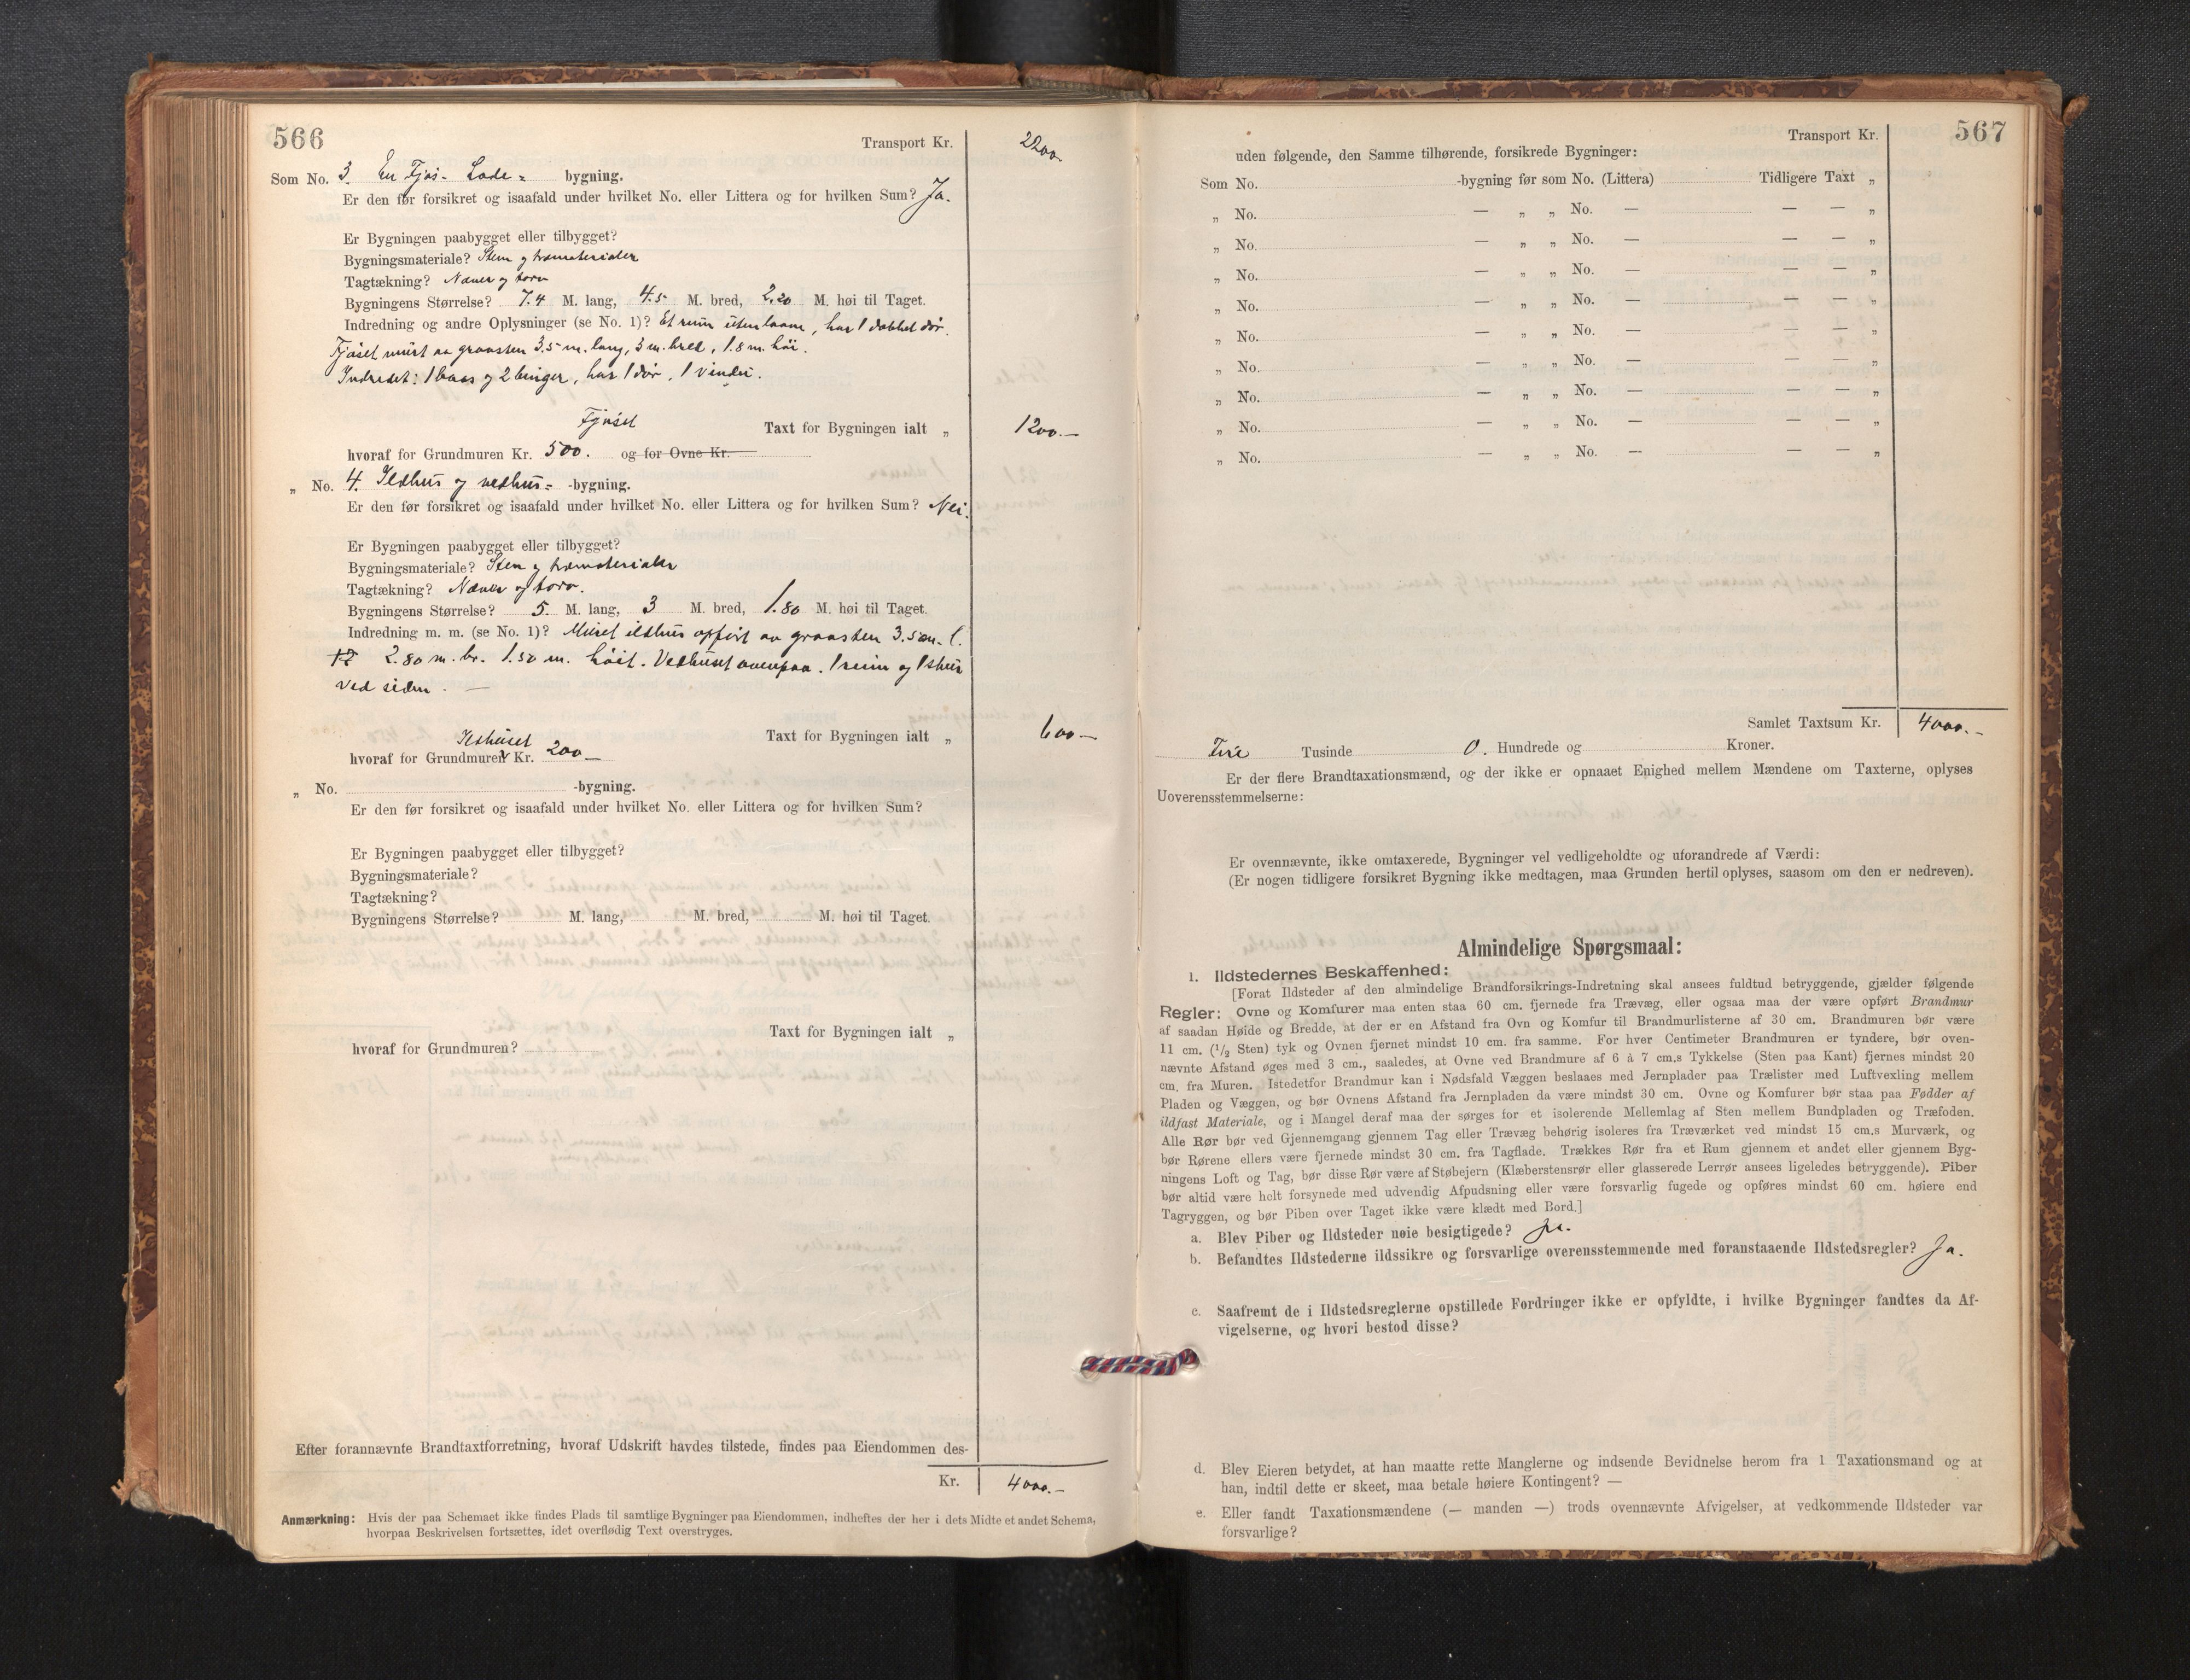 566
Transport Kr. 2200.
Som No. 3. En Fjøs- Lade- bygning.
Er den før forsikret og isaafald under hvilket No. eller Littera og for hvilken Sum? Ja.
Er Bygningen paabygget eller tilbygget?
Bygningsmateriale? Sten og træmaterialer
Tagtækning? Næver og torv
Bygningens Størrelse? 7.4 M. lang, 4.5 M. bred, 2.20 M. høi til Taget.
Indredning og andre Oplysninger (se No. 1)? Et rum uten laave, har 1 dobbel dør.
Fjøset muret av graasten 3.5 m. lang, 3 m. bred, 1.8 m. høi.
Indredet: 1 baas og 2 binger, har 1 dør, 1 vindu.
Fjøset
Taxt for Bygningen ialt „ 1200.—
hvoraf for Grundmuren Kr. 500. og for Ovne Kr.
„ No. 4. Ildhus og vedhus- -bygning.
Er den før forsikret og isaafald under hvilket No. eller Littera og for hvilken Sum? Nei.
Er Bygningen paabygget eller tilbygget?
Bygningsmateriale? Sten og træmaterialer
Tagtækning? Næver og torv.
Bygningens Størrelse? 5. M. lang, 3 M. bred, 1.80 M. høi til Taget.
Indredning m. m. (se No. 1)? Muret ildhus opført av graasten 3.5 m. l.
2.80 m. br. 1.50 m. høit. Vedhuset ovenpaa. 1 rum og 1 skur
ved siden. —
Ildhuset
Taxt for Bygningen ialt „ 600—
hvoraf for Grundmuren Kr. 200—
„ No. -bygning.
Er den før forsikret og isaafald under hvilket No. eller Littera og for hvilken Sum?
Er Bygningen paabygget eller tilbygget?
Bygningsmateriale?
Tagtækning?
Bygningens Størrelse? M. lang, M. bred, M. høi til Taget.
Taxt for Bygningen ialt „
hvoraf for Grundmuren?
Efter forannævnte Brandtaxtforretning, hvoraf Udskrift havdes tilstede, findes paa Eiendommen des-
Kr. 4000.—
Anmærkning: Hvis der paa Schemaet ikke findes Plads til samtlige Bygninger paa Eiendommen, indheftes der her i dets Midte et andet Schema,
hvorpaa Beskrivelsen fortsættes, idet overflødig Text overstryges.
567
Transport Kr.
uden følgende, den Samme tilhørende, forsikrede Bygninger:
Som No. -bygning før som No. (Littera) Tidligere Taxt „
„ No. — „ „ No. — — — „
„ No. — „ „ No. — — — „
„ No. — „ „ No. — — — „
„ No. — „ „ No. — — — „
„ No. — „ „ No. — — — „
„ No. — „ „ No. — — — „
„ No. — „ „ No. — — — „
„ No. — „ „ No. — — — „
„ No. — „ „ No. — — — „
Samlet Taxtsum Kr. 4000.—
Fire Tusinde 0. Hundrede og Kroner.
Er der flere Brandtaxationsmænd, og der ikke er opnaaet Enighed mellem Mændene om Taxterne, oplyses
Uoverensstemmelserne:
Er ovennævnte, ikke omtaxerede, Bygninger vel vedligeholdte og uforandrede af Værdi:
(Er nogen tidligere forsikret Bygning ikke medtagen, maa Grunden hertil oplyses, saasom om den er nedreven).
Almindelige Spørgsmaal:
1. Ildstedernes Beskaffenhed:
[Forat Ildsteder af den almindelige Brandforsikrings-Indretning skal ansees fuldtud betryggende, gjælder følgende
Regler: Ovne og Komfurer maa enten staa 60 cm. fjernede fra Trævæg, eller ogsaa maa der være opført Brandmur
af saadan Høide og Bredde, at der er en Afstand fra Ovn og Komfur til Brandmurlisterne af 30 cm. Brandmuren bør være
11 cm. (1/2 Sten) tyk og Ovnen fjernet mindst 10 cm. fra samme. For hver Centimeter Brandmuren er tyndere, bør oven-
nævnte Afstand øges med 3 cm., saaledes, at Ovne ved Brandmure af 6 à 7 cm.s Tykkelse (Sten paa Kant) fjernes mindst 20
cm. fra Muren. Istedetfor Brandmur kan i Nødsfald Væggen beslaaes med Jernplader paa Trælister med Luftvexling mellem
Pladen og Væggen, og bør Ovnens Afstand fra Jernpladen da være mindst 30 cm. Ovne og Komfurer bør staa paa Fødder af
ildfast Materiale, og i Mangel deraf maa der sørges for et isolerende Mellemlag af Sten mellem Bundpladen og Træfoden.
Alle Rør bør ved Gjennemgang gjennem Tag eller Trævæg behørig isoleres fra Træværket ved mindst 15 cm.s Murværk, og
bør Rørene ellers være fjernede mindst 30 cm. fra Tagflade. Trækkes Rør fra et Rum gjennem et andet eller gjennem Byg-
ningens Loft og Tag, bør disse Rør være af Støbejern (Klæberstensrør eller glasserede Lerrør ansees ligeledes betryggende). Piber
bør altid være helt forsynede med udvendig Afpudsning eller være forsvarlig fugede og opføres mindst 60 cm. høiere end
Tagryggen, og bør Piben over Taget ikke være klædt med Bord.]
a. Blev Piber og Ildsteder nøie besigtigede? Ja.
b. Befandtes Ildstederne ildssikre og forsvarlige overensstemmende med foranstaaende Ildstedsregler? Ja.
c. Saafremt de i Ildstedsreglerne opstillede Fordringer ikke er opfyldte, i hvilke Bygninger fandtes da Af-
vigelserne, og hvori bestod disse?
d. Blev Eieren betydet, at han maatte rette Manglerne og indsende Bevidnelse herom fra 1 Taxationsmand og at
han, indtil dette er skeet, maa betale høiere Kontingent? —
e. Eller fandt Taxationsmændene (— manden —) trods ovennævnte Afvigelser, at vedkommende Ildsteder var
forsvarlige?